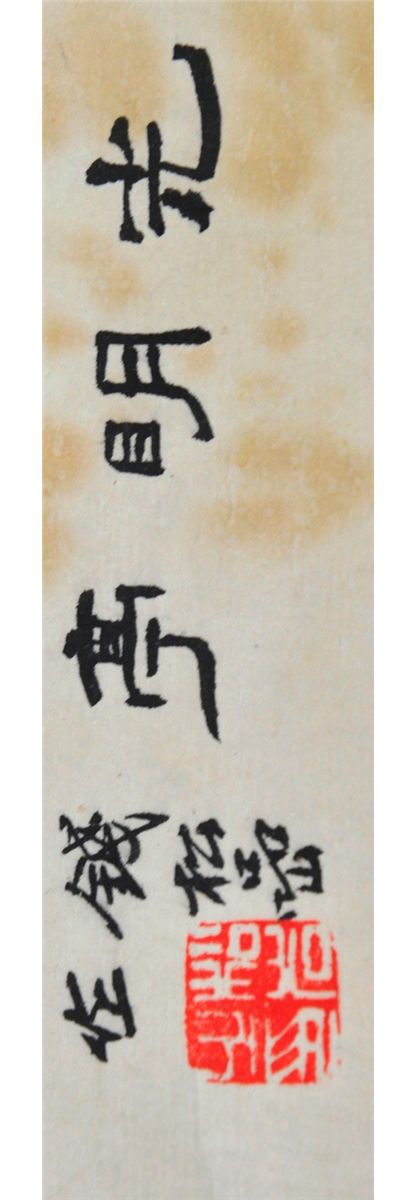 光明亭
錢松嵒
作